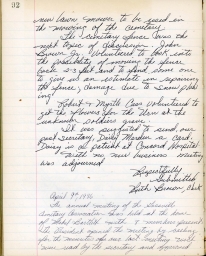 32
new lawn-mower to be used in
the mowing of the Cemetery.
The cemetery fence was the
next topic of discussion. John
Brown Jr. Volunteered to look into
the possibility of moving the fence
back 2-3 feet and to find some one
to give us an estimate on repairing
the fence, damage due to snow plow-
ing.
Robert & Myrtle Cass Volunteered to
get the flowers for the Urn at the
unknown soldiers grave.
It was suggested to send our
past secretary, Daisy a card.
Daisy is at patient at Concord Hospital
With no new business meeting
was adjourned
Respectfully
Submitted
Ruth Clerk
April 9th, 1991
The annual meeting of the
Cemetery Association was held at the home
of
The President opened the meeting by asking
for the minutes of our last meeting which
were read by the secretary and approved